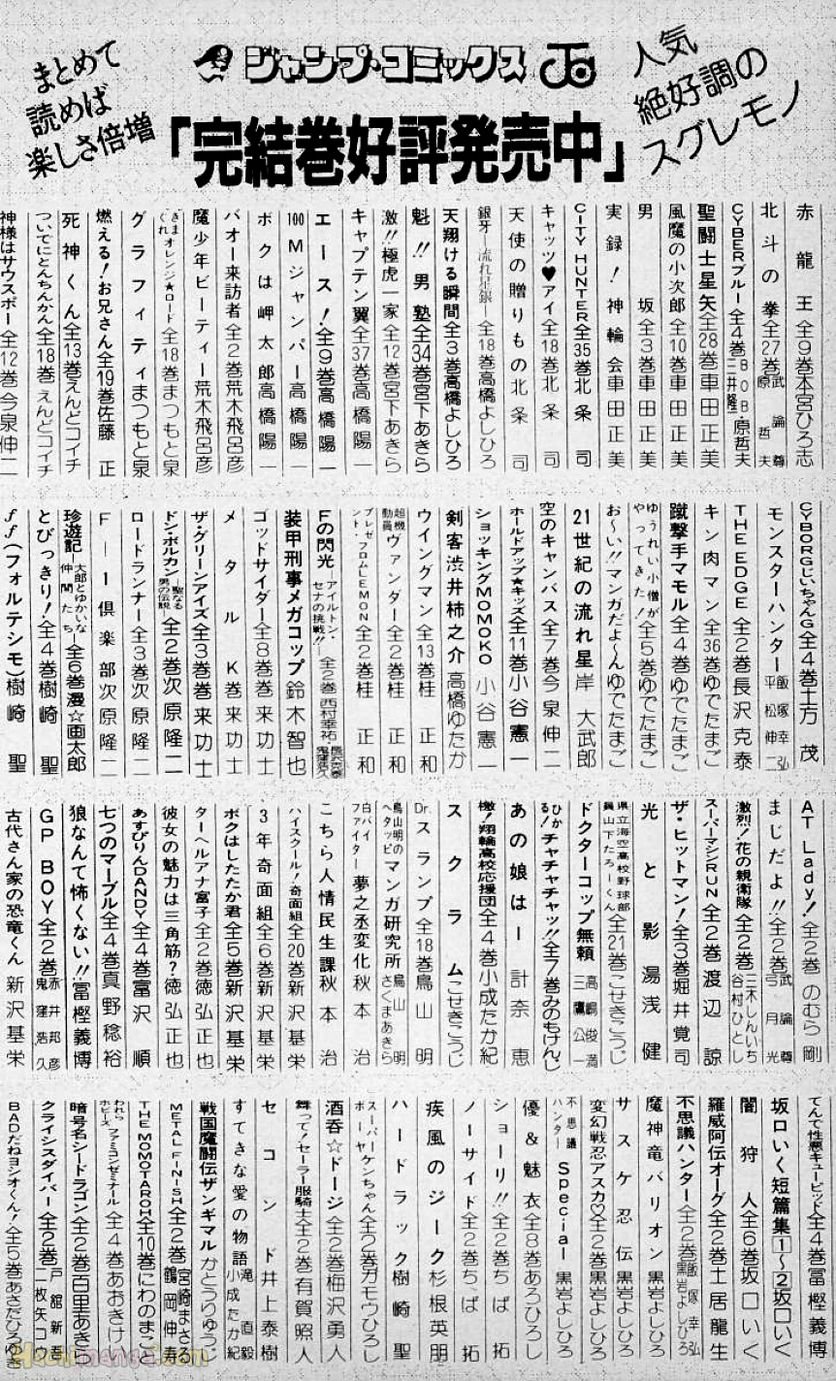 まとめて
読めば
楽しさ倍増
ジャンプ・コミックス
人気
絶好調の
スグレモノ
「完結巻好評発売中」
赤龍王全9巻本宮ひろ志
北斗の拳全27巻武論尊 原哲夫
CYBERブルー全4巻BOB・原哲夫 三井隆一
聖闘士星矢全28巻車田正美
風魔の小次郎全10巻車田正美
男坂全3巻車田正美
実録!神輪会車田正美
CITY HUNTER全35巻北条司
キャッツ♥アイ全18巻北条司
天使の贈りもの北条司
銀牙―流れ星銀―全18巻高橋よしひろ
天翔ける瞬間全3巻高橋よしひろ
魁!!男塾全34巻宮下あきら
激!!極虎一家全12巻宮下あきら
キャプテン翼全37巻高橋陽一
エース!全9巻高橋陽一
100Mジャンパー高橋陽一
ボクは岬太郎高橋陽一
バオー来訪者全2巻荒木飛呂彦
魔少年ビーティー荒木飛呂彦
きまぐれオレンジ★ロード全18巻まつもと泉
グラフィティまつもと泉
燃える!お兄さん全19巻佐藤正
死神くん全13巻えんどコイチ
ついでにとんちんかん全18巻えんどコイチ
神様はサウスポー全12巻今泉伸二
CYBORGじいちゃんG全4巻土方茂
モンスターハンター飯塚幸弘 平松伸二
THE EDGE全2巻長沢克泰
キン肉マン全36巻ゆでたまご
蹴撃手マモル全4巻ゆでたまご
ゆうれい小僧がやってきた!全5巻ゆでたまご
お〜い!!マンガだよ〜んゆでたまご
21世紀の流れ星岸大武郎
空のキャンバス全7巻今泉伸二
ホールドアップ★キッズ全11巻小谷憲一
ショッキングMOMOKO小谷憲一
剣客渋井柿之介高橋ゆたか
ウイングマン全13巻桂正和
超機動員ヴァンダー全2巻桂正和
プレゼント・フロムLEMON全2巻桂正和
Fの閃光―アイルトン・セナの挑戦!!―全2巻西村幸祐 鬼窪浩久
装甲刑事メガコップ鈴木智也
ゴッドサイダー全8巻巻来功士
メタルK巻来功士
ザ・グリーンアイズ全3巻巻来功士
ドン・ボルカン―聖なる男の伝説―全2巻次原隆二
ロードランナー全3巻次原隆二
F―1倶楽部次原隆二
珍遊記―太郎とゆかいな仲間たち―全6巻漫☆画太郎
とびっきり!全4巻樹崎聖
ff(フォルテシモ)樹崎聖
AT Lady!全2巻のむら剛
まじだよ!!全2巻武論尊 弓月光
激烈!花の親衛隊全2巻三木しんいち 谷村ひとし
スーパーマシンRUN全2巻渡辺諒
ザ・ヒットマン!全3巻堀井覚司
光と影湯浅健
県立海空高校野球部員山下たろーくん全21巻こせきこうじ
ドクターコップ無頼高嶋俊満 三鷹公一
ひかる!チャチャチャッ!!全7巻みのもけんじ
あの娘は―計奈恵
檄!翔輪高校応援団全4巻小成たか紀
スクラムこせきこうじ
Dr.スランプ全18巻鳥山明
鳥山明のヘタッピマンガ研究所鳥山明 さくまあきら
白バイファイター夢之丞変化秋本治
こちら人情民生課秋本治
ハイスクール!奇面組全20巻新沢基栄
3年奇面組全6巻新沢基栄
ボクはしたたか君全5巻新沢基栄
ターヘルアナ富子全2巻徳弘正也
彼女の魅力は三角筋?徳弘正也
あすぴりんDANDY全4巻富沢順
七つのマーブル全4巻真野稔裕
狼なんて怖くない!!冨樫義博
GP BOY全2巻赤井邦彦 鬼窪浩久
古代さん家の恐竜くん新沢基栄
てんで性悪キューピッド全4巻冨樫義博
坂口いく短篇集1〜2坂口いく
闇狩人全6巻坂口いく
羅威阿伝オーグ全2巻土居龍生
不思議ハンター全2巻飯塚幸弘 黒岩よしひろ
魔神竜バリオン黒岩よしひろ
サスケ忍伝黒岩よしひろ
変幻戦忍アスカ♡全2巻黒岩よしひろ
不思議ハンターSpecial黒岩よしひろ
優&魅衣全8巻あろひろし
ショーリ!!全2巻ちば拓
ノーサイド全2巻ちば拓
疾風のジーク杉根英朋
ハードラック樹崎聖
スーパーケンちゃんボーヤ全2巻ガモウひろし
酒呑☆ドージ全2巻梅沢勇人
舞って!セーラー服騎士全2巻有賀照人
セコンド井上泰樹
すてきな愛の物語滝直毅 小成たか紀
戦国魔闘伝ザンギマルかとうりゅうじ
METAL FINISH全2巻宮崎まさる 鶴岡伸寿
THE MOMOTAROH全10巻にわのまこと
われらホビーズファミコンゼミナール全4巻あおきけい
暗号名シードラゴン全2巻百里あきら
クライシスダイバー全2巻戸舘新吾 二枚矢コウ
BADだねヨシオくん!全5巻あさだひろゆき